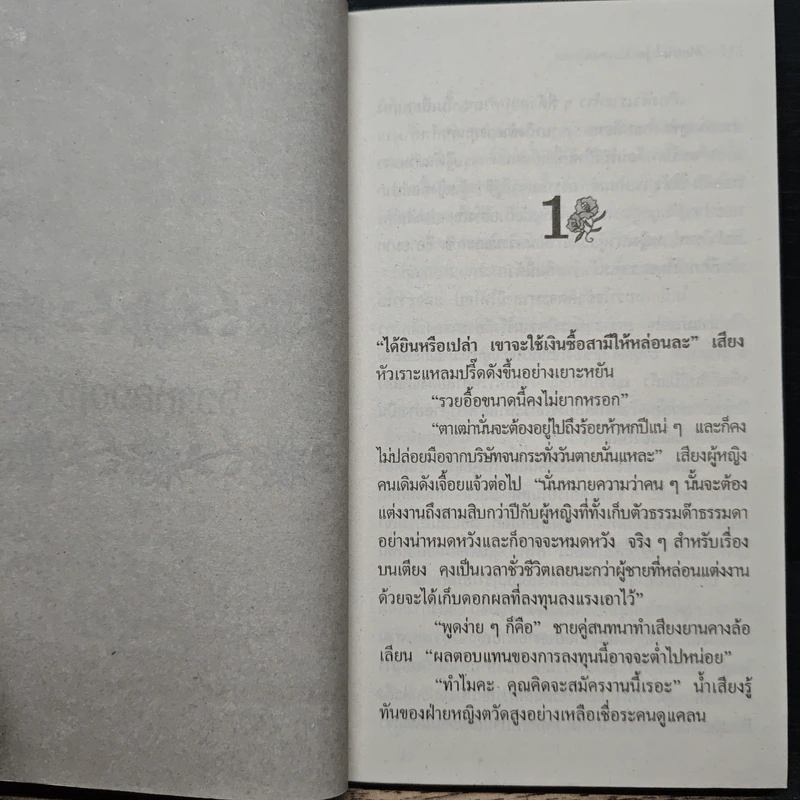 1
“ได้ยินหรือเปล่า เขาจะใช้เงินซื้อสามีให้หล่อนละ” เสียง
หัวเราะแหลมปรี๊ดดังขึ้นอย่างเยาะหยัน
“รวยอื้อขนาดนี้คงไม่ยากหรอก”
“ตาเฒ่านั่นจะต้องอยู่ไปถึงร้อยห้าหกปีแน่ ๆ และก็คง
ไม่ปล่อยมือจากบริษัทจนกระทั่งวันตายนั่นแหละ” เสียงผู้หญิง
คนเดิมดังเจื้อยแจ้วต่อไป “นั่นหมายความว่าคน ๆ นั้นจะต้อง
แต่งงานถึงสามสิบกว่าปีกับผู้หญิงที่ทั้งเก็บตัวธรรมด๊าธรรมดา
อย่างน่าหมดหวังและก็อาจจะหมดหวัง จริง ๆ สำหรับเรื่อง
บนเตียง คงเป็นเวลาชั่วชีวิตเลยนะกว่าผู้ชายที่หล่อนแต่งงาน
ด้วยจะได้เก็บดอกผลที่ลงทุนลงแรงเอาไว้”
“พูดง่าย ๆ ก็คือ” ชายคู่สนทนาทำเสียงยานคางล้อ
เลียน “ผลตอบแทนของการลงทุนนี้อาจจะต่ำไปหน่อย”
“ทำไมคะ คุณคิดจะสมัครงานนี้เรอะ” น้ำเสียงรู้
ทันของฝ่ายหญิงตวัดสูงอย่างเหลือเชื่อระคนดูแคลน